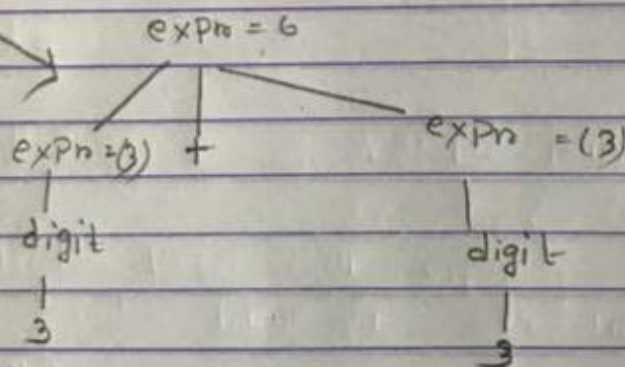 expn = 6
expn = (3) + expn = (3)
digit digit
3 3